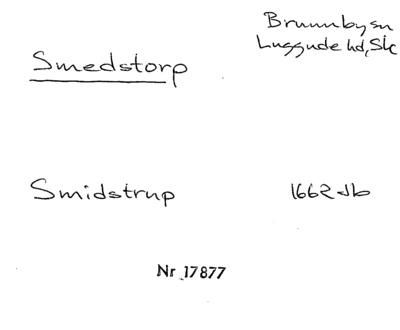 Smedstorp
Brunnby sn
Luggude hd, Sk
Smidstrup
1662 Jb
Nr 17877